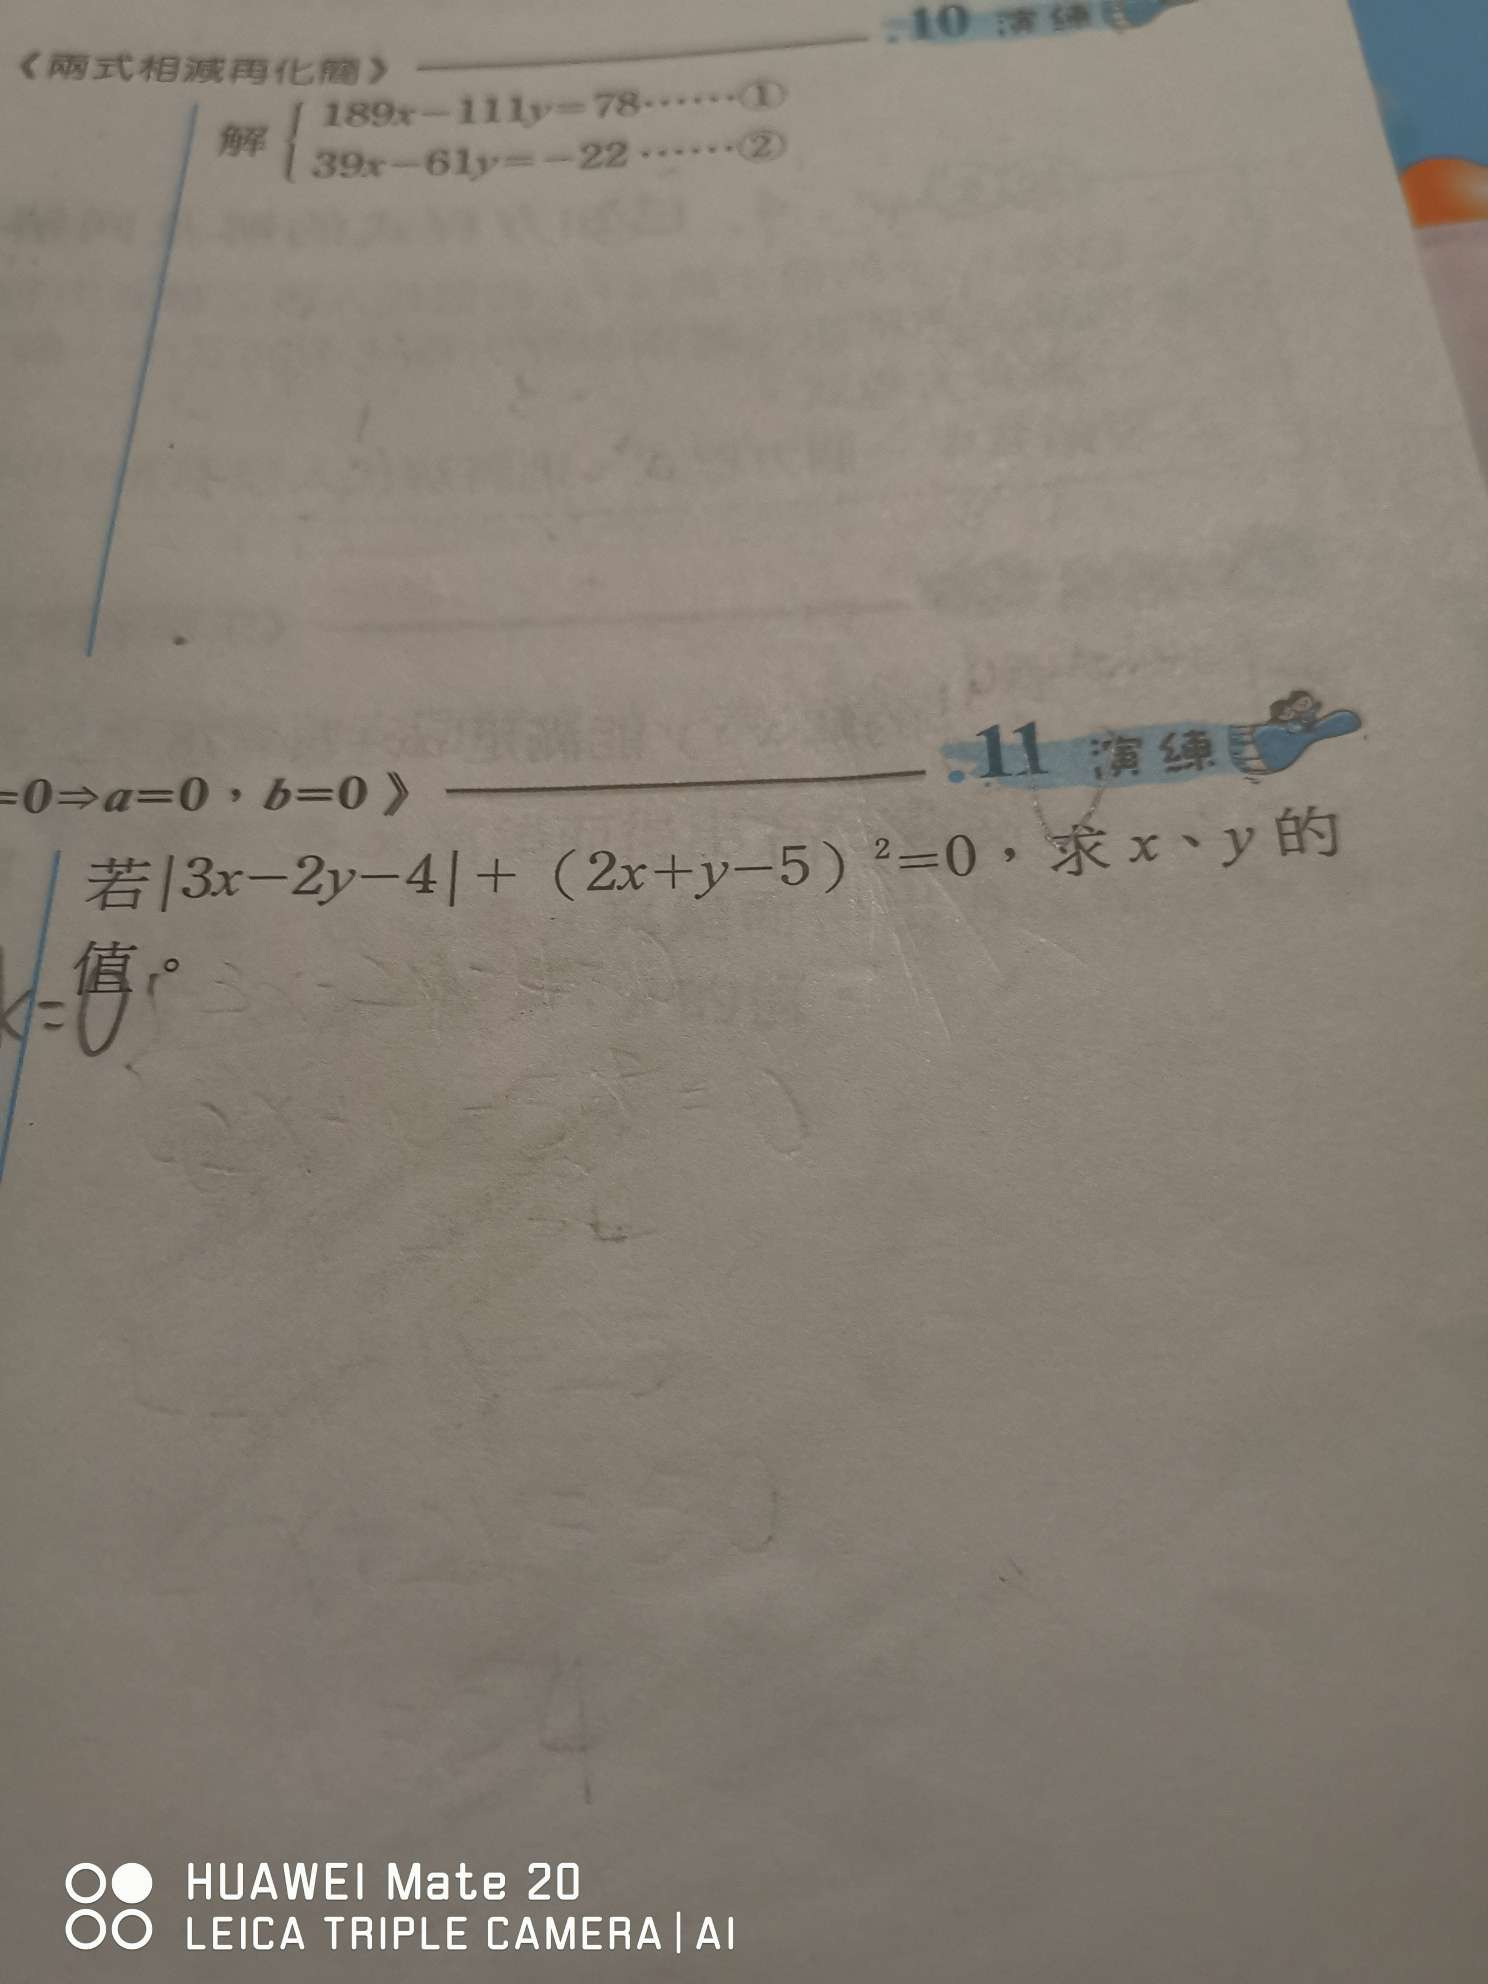 10 演練
《兩式相減再化簡》
解 { 189x－111y＝78……①
39x－61y＝－22……②
11 演練
=0⇒a=0，b=0》
若|3x－2y－4|＋（2x＋y－5）²＝0，求 x、y 的
值。
k=0
HUAWEI Mate 20
LEICA TRIPLE CAMERA | AI